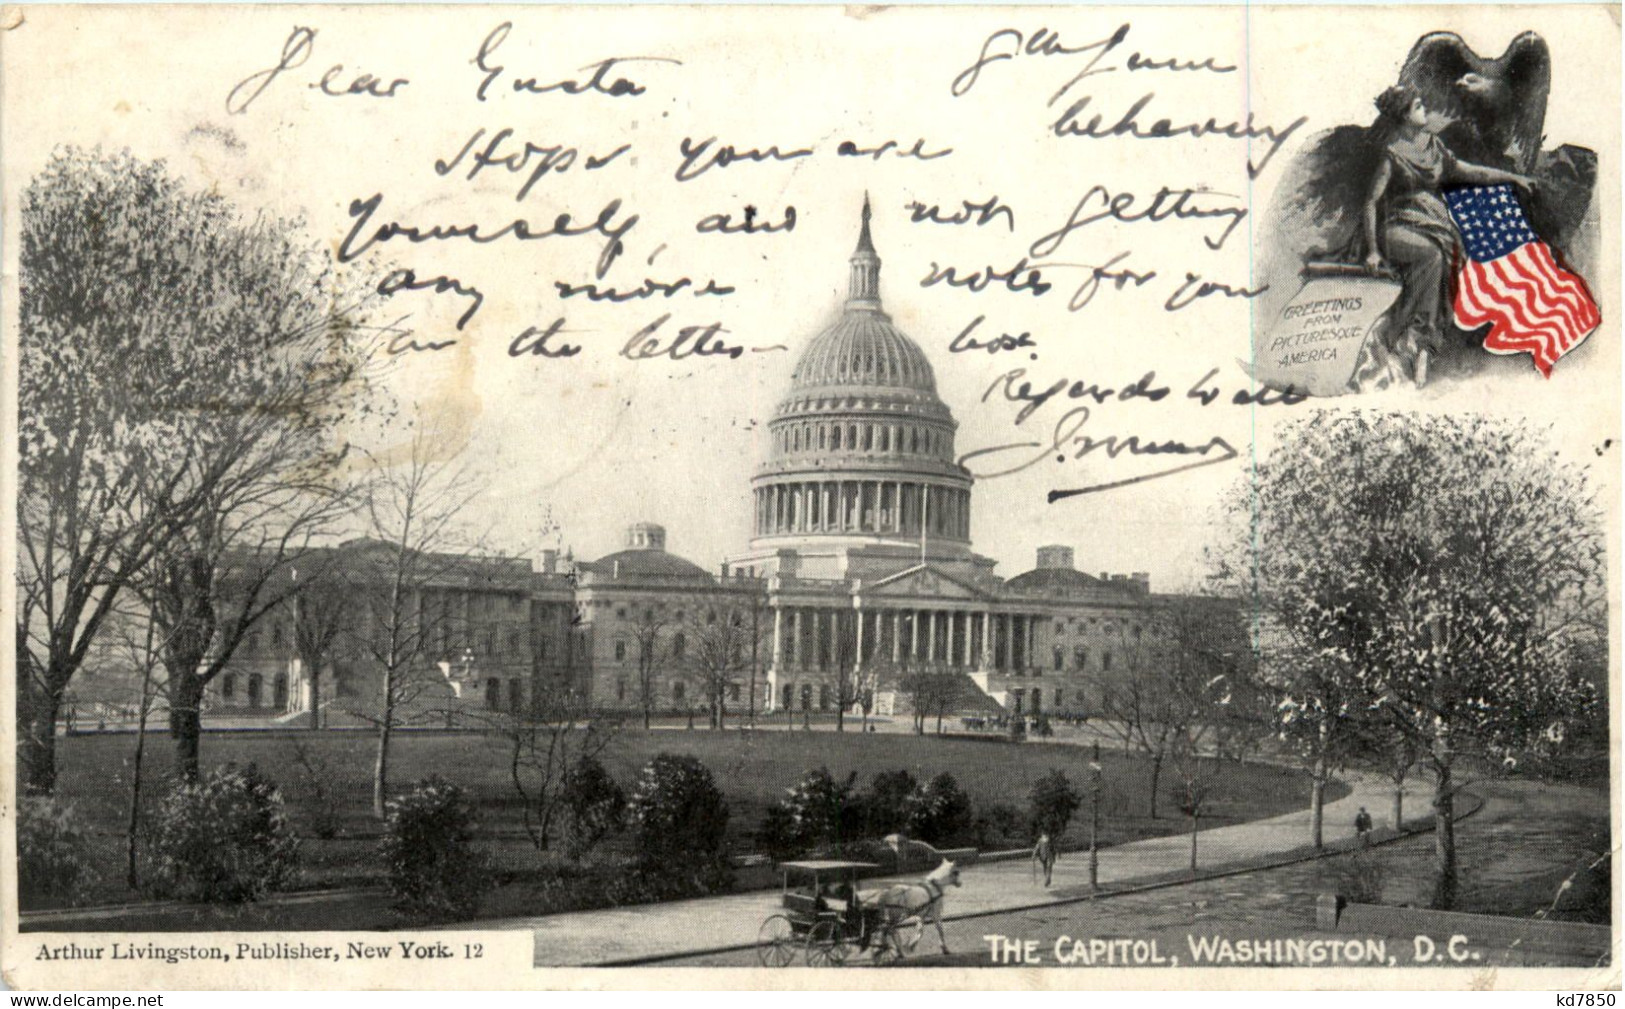 Dear Gusta
Hope you are behaving
yourself and not getting
any more notes for you
in the letter box.
Regards to all
GREETINGS
FROM
PICTURESQUE
AMERICA
Arthur Livingston, Publisher, New York. 12
THE CAPITOL, WASHINGTON, D.C.
kd7850